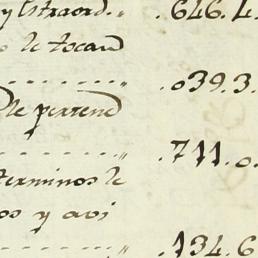 y Extraord. " .646.4
o le tocan
.039.3.
le perrene
" .711.0.
terminos le
os y avi
" .134.6